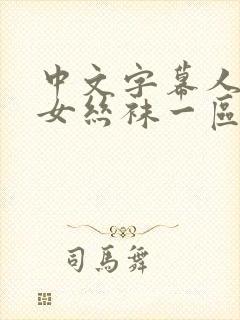 中文字幕人
女丝袜一區
司馬舞